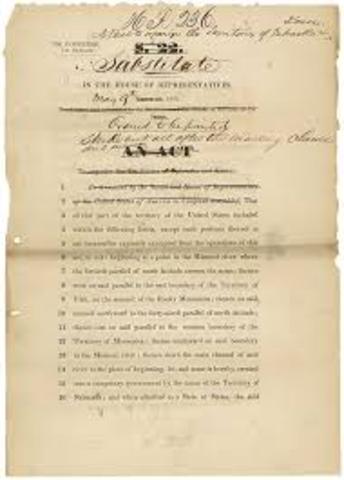 H.R. 236
A Bill to organize the Territory of Nebraska
33D CONGRESS,
1ST SESSION.
S. 22.
Substitute
IN THE HOUSE OF REPRESENTATIVES.
May 9th
Ordered to be printed
Strike out all after the enacting clause
AN ACT
To organize the
1 Be it enacted by the Senate and House of Representatives
2 of the United States of America in Congress assembled, That
3 all that part of the territory of the United States included
4 within the following limits, except such portions thereof as
5 are hereinafter expressly exempted from the operations of this
6 act, to wit: beginning at a point in the Missouri river where
7 the fortieth parallel of north latitude crosses the same; thence
8 west on said parallel to the east boundary of the Territory of
9 Utah, on the summit of the Rocky Mountains; thence on said
10 summit northward to the forty-ninth parallel of north latitude;
11 thence east on said parallel to the western boundary of the
12 Territory of Minnesota; thence southward on said boundary
13 to the Missouri river; thence down the main channel of said
14 river to the place of beginning, be, and the same is hereby, created
15 into a temporary government by the name of the Territory of
16 Nebraska; and when admitted as a State or States, the said